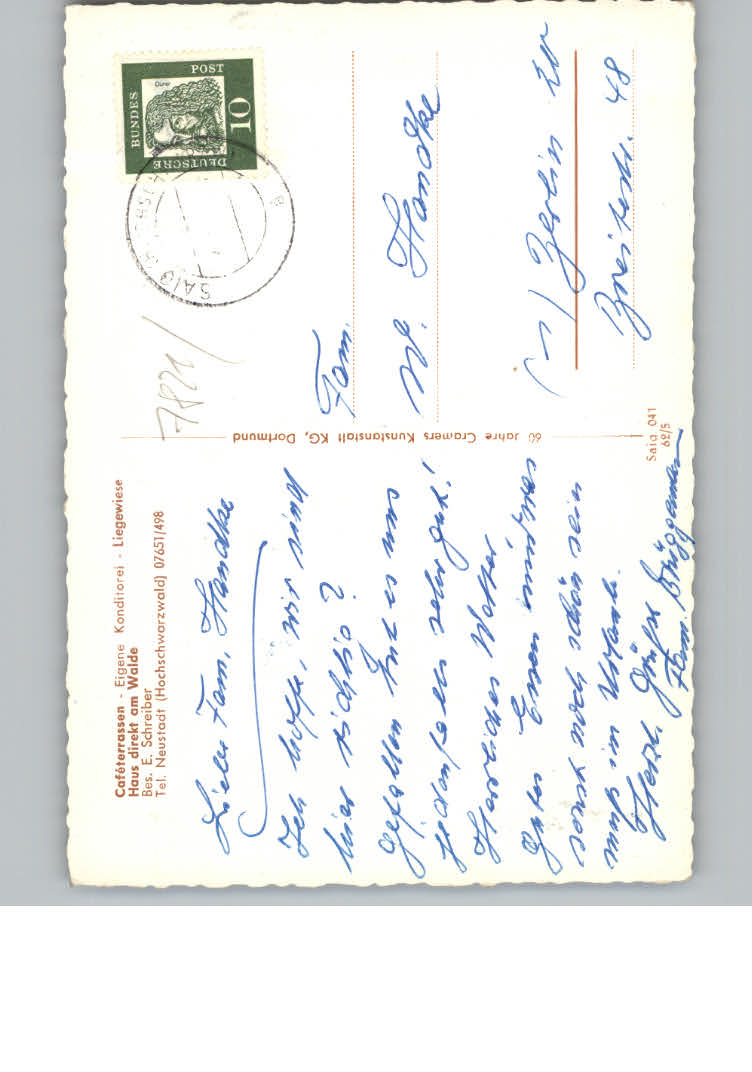 Caféterrassen - Eigene Konditorei - Liegewiese
Haus direkt am Walde
Bes. E. Schreiber
Tel. Neustadt (Hochschwarzwald) 07651/498
Liebe Fam. Handke
Ich hoffe, wir sind
hier richtig?
Gefallen tut es uns
jedenfalls sehr gut!
Herrliches Wetter
Gutes Essen und was
sonst noch schön sein
muß im Urlaub.
Herzl. Grüße
Fam. Brüggemann
60 Jahre Cramers Kunstanstalt KG, Dortmund
Saig 041
62/5
DEUTSCHE
BUNDES
POST
10
Dürer
SAIG
a
7821
Fam.
W. Handke
(1) Berlin 20
Breitestr. 48